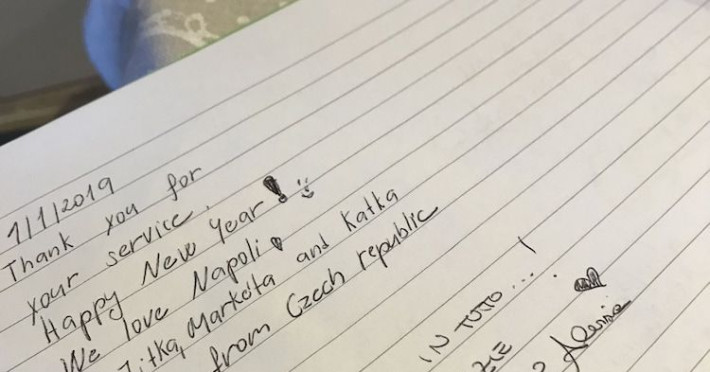 1/1/2019
Thank you for
your service.
Happy New Year!
We love Napoli
Jitka, Markéta and Katka
from Czech republic
IN TUTO...!